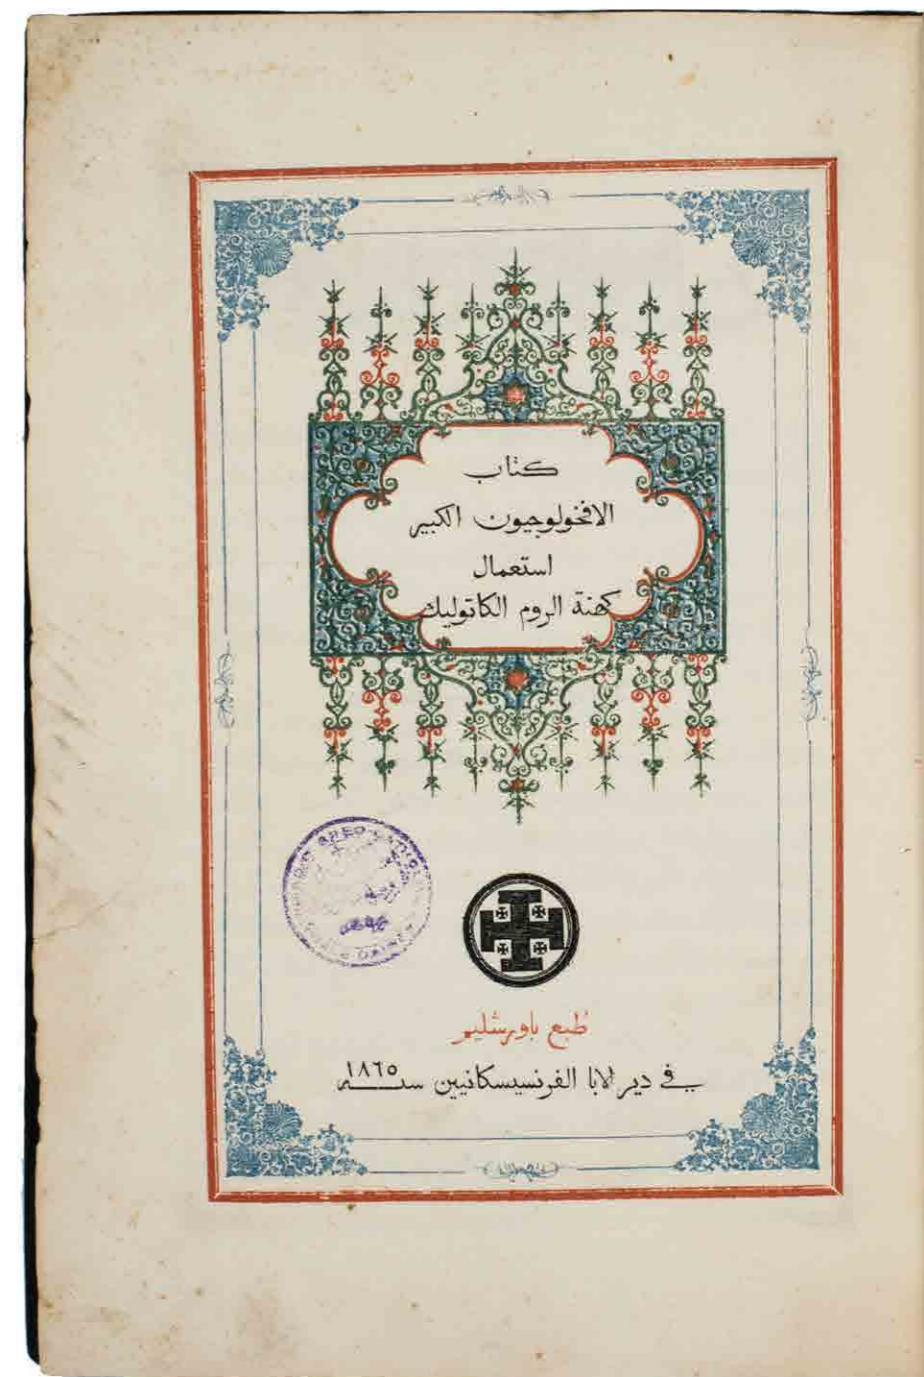 كتاب
الافخولوجيون الكبير
استعمال
كهنة الروم الكاتوليك
طبع باورشليم
في دير الابا الفرنسيسكانيين سنه ١٨٦٥